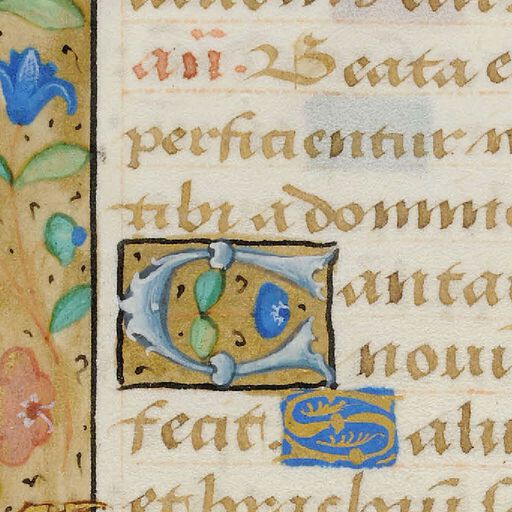 añ. Beata e
perficientur
tibi a domino
Canta
noui
fecit. Salu
et brachiũ